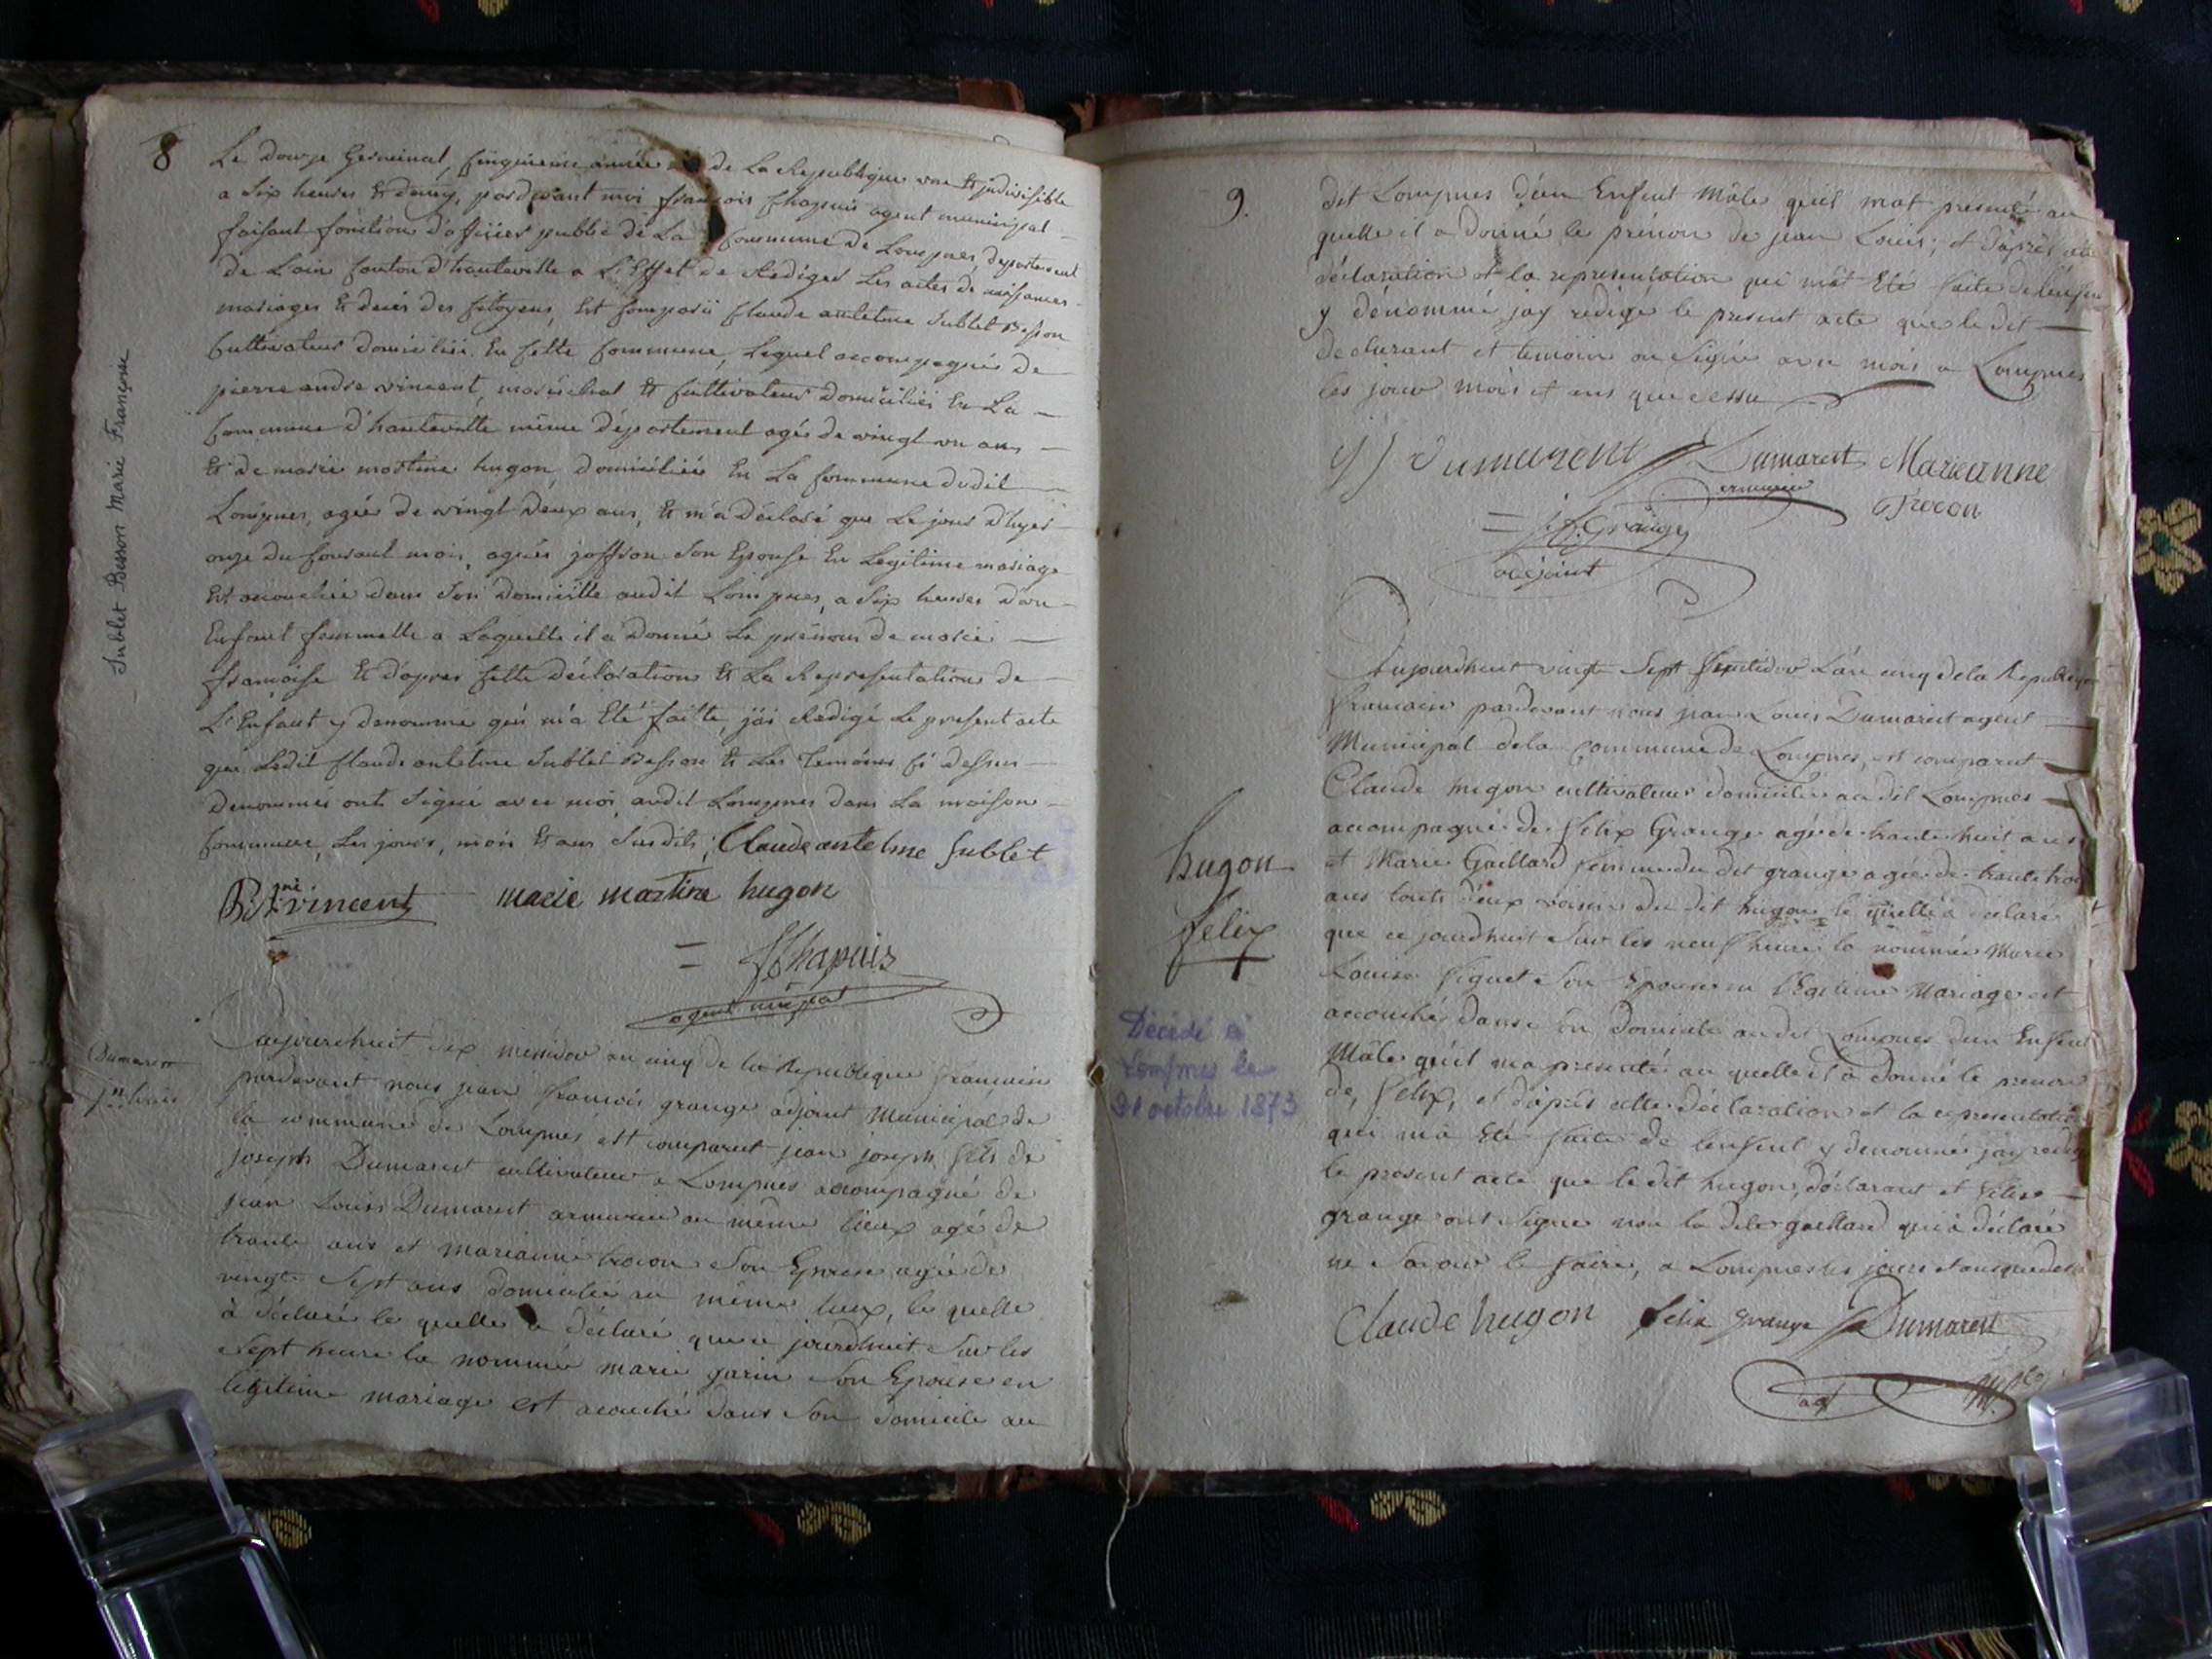 8
Sublet Besson Marie Françoise
Le douze Germinal, Cinquieme année de La Republique une & jndivisible
a Six heures & demy, pardevant moi françois Chapuis agent municipal
faisant fonction d'officier public de La Commune de Lompnes, departement
de Lain Canton d'hauteville a L'Effet de Rediger Les actes de naissances
mariages & decés des Citoyens, Est Comparü Claude antelme Sublet Besson
Cultivateur domicilié En Cette Commune, Lequel accompagnés de
pierre andre vincent, maréchal & Cultivateur domiciliés En La
Commune d'hauteville même département agés de vingt un ans
& de marie martine hugon, domiciliée En La Commune dudit
Lompnes, agée de vingt deux ans, & m'a déclaré que Le jour d'hyer
onze du Courant mois, agnés joffron Son Epouse En Legitime mariage
Est accouchée dans Son domicille audit Lompnes, a Six heures d'un
Enfant femmelle a Laquelle il a donné Le prénom de marie
françoise & d'après Cette déclaration & La Representation de
L'Enfant y denommé qui m'a Eté faitte, j'ai Redigé Le present acte
que Ledit Claude antelme Sublet Besson & Les Temoins Ci dessus
denommés ont Signé avec moi audit Lompnes dans La maison
Commune, Les jours, mois & ans Susdits; Claude antelme Sublet
vincent marie martine hugon
= f Chapuis
agent mũpal
Dumarest
jn Louis
aujourdhuit dix messidor an cinq de la Republique françaisse
pardevant nous jean francois grange adjoint Municipal de
la commune de Lompnes est comparut jean joseph fils de
joseph Dumarest cultivateur a Lompnes accompagné de
jean Louis Dumarest armurier au même lieux agé de
trante ans et marianne trocon Son Epouse agée de
vingt Sept ans domiciliée au même lieux, le quelle
à déclaré le quelle a déclaré que ce jourdhuit Sur les
Sept heure la nommée marie garin Son Epouse en
légitime mariage est acouché dans Son domicile au
9.
dit Lompnes d'un Enfent Mâle qu'il mat presenté au
quelle il a donné le prénon de jean Louis; et d'après cette
déclaration et la representation qui mât Eté faite de lenfen
y dénommé jay redigé le present acte que le dit
declarant et temoin on Signé avec mois a Lompnes
les jour mois et ans que dessu
JJ Dumarent Dumarest Marieanne
armurier Trocon
= J. f. Grange
adjoint
Aujourdhuit vingt Sept L'an cinq de la Republique
francaisse pardevant nous jean Louis Dumarest agent
Municipal dela Commune de Lompnes, est comparut
Claude hugon cultivateur domicilié au dit Lompnes
accompagné de felix Grange agé de trante huit ans
et Marie Gaillard femme du dit grange agée de trante trois
ans touts deux voisin du dit hugon le quelle à déclaré
que ce jourdhuit Sur les neuf heure la nommée Marie
Louise Son Epouse en légitime Mariage est
acouché dans Son Domicile au dit Lompnes d'un Enfent
Mâle qu'il ma presenté au quelle il à donné le prenon
de, felix, et d'après cette déclaration et la representation
qui mà Eté faite de lenfent y denommé jay redigé
le present acte que le dit hugon, déclarant et félix
grange ont Signé non la dite gaillard qui à déclaré
ne Savoir le faire, a Lompnes les jours et ans que dessu
Claude hugon felix grange Dumarest
agt mupal
hugon
felix
Décédé à
Lompnes le
31 octobre 1873